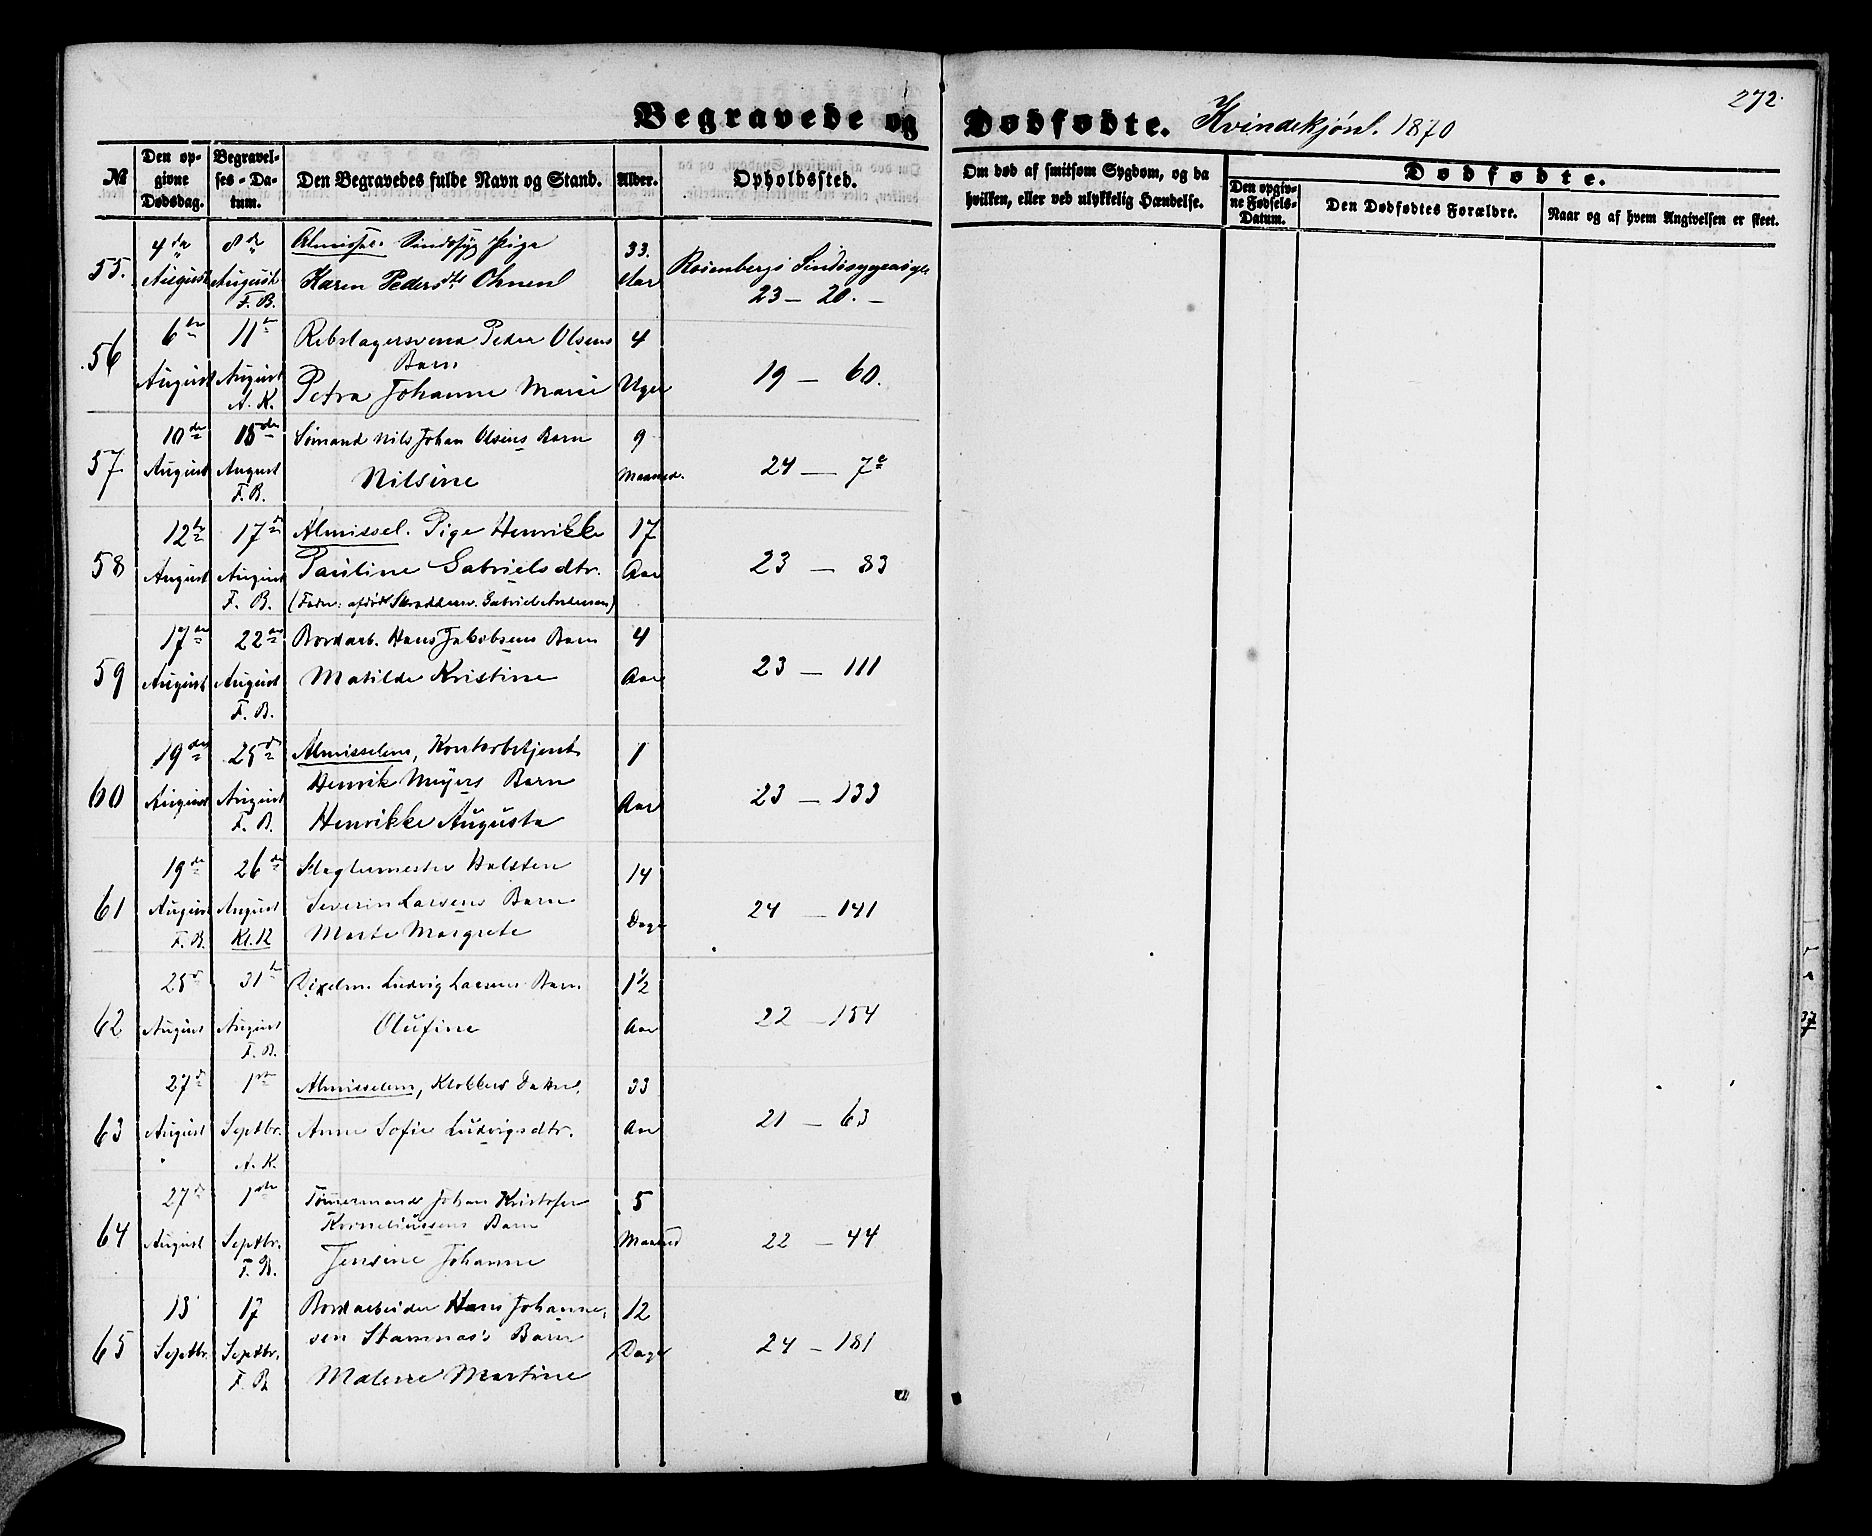 272.
Begravede og Dødfødte. Kvindekjønl. 1870
№
Den opgivne Dødsdag.
Begravelses-Datum.
Den Begravedes fulde Navn og Stand.
Alder.
Opholdssted.
Om død af smitsom Sygdom, og da hvilken, eller ved ulykkelig Hændelse.
Dødfødte.
Den opgivne Fødsels-Datum.
Den Dødfødtes Forældre.
Naar og af hvem Angivelsen er skeet.
55. 4de August 8de August F. B.
Sindssyg Pige
Karen Pedersdtr
33. Aar
Rosenbergs Sindssygeasyl
23 — 20. —
56 6te August 11te August A. K.
Rebslagersvend Peder Olsens
Barn
Petra Johanne Marie
4 Uger
19 — 60.
57 10de August 15de August F. B.
Sømand Nils Johan Olsens Barn
Nilsine
9 Maaned.
24 — 7a
58 12te August 17de August F. B.
Almissel. Pige Henrikke
Pauline Gabrielsdtr.
(Fader: afdøde Skræddersv. Gabriel Andersen)
17 Aar
23 — 83
59 17de August 22de August F. B.
Bordarb. Hans Jakobsens Barn
Matilde Kristine
4 Aar
23 — 111
60 19de August 25de August F. B.
Almisselem, Kontorbetjent
Henrik Meÿers Barn
Henrikke Augusta
1 Aar
23 — 133
61 19de August F. B. 26de August Kl. 12
Slagtermester Halsten
Severin Larsens Barn
Marte Margrete
14 Dage
24 — 141
62 25de August 31te August F. B.
Ludvig Larsens Barn
Olufine
1½ Aar
22 — 154
63 27de August 1ste Septbr. A. K.
Almisselem, Klokkers Datter,
Anne Sofie Ludvigsdtr.
33 Aar
21 — 63
64 27de August 1ste Septbr. F. B.
Tømmermand Johan Kristofer
Korneliussens Barn
Jensine Johanne
5 Maaned
22 — 44
65 13 Septbr. 17 Septbr. F. B.
Bordarbeider Hans Johannesen
Stamnas's Barn
Malene Martine
12 Dage
24 — 181